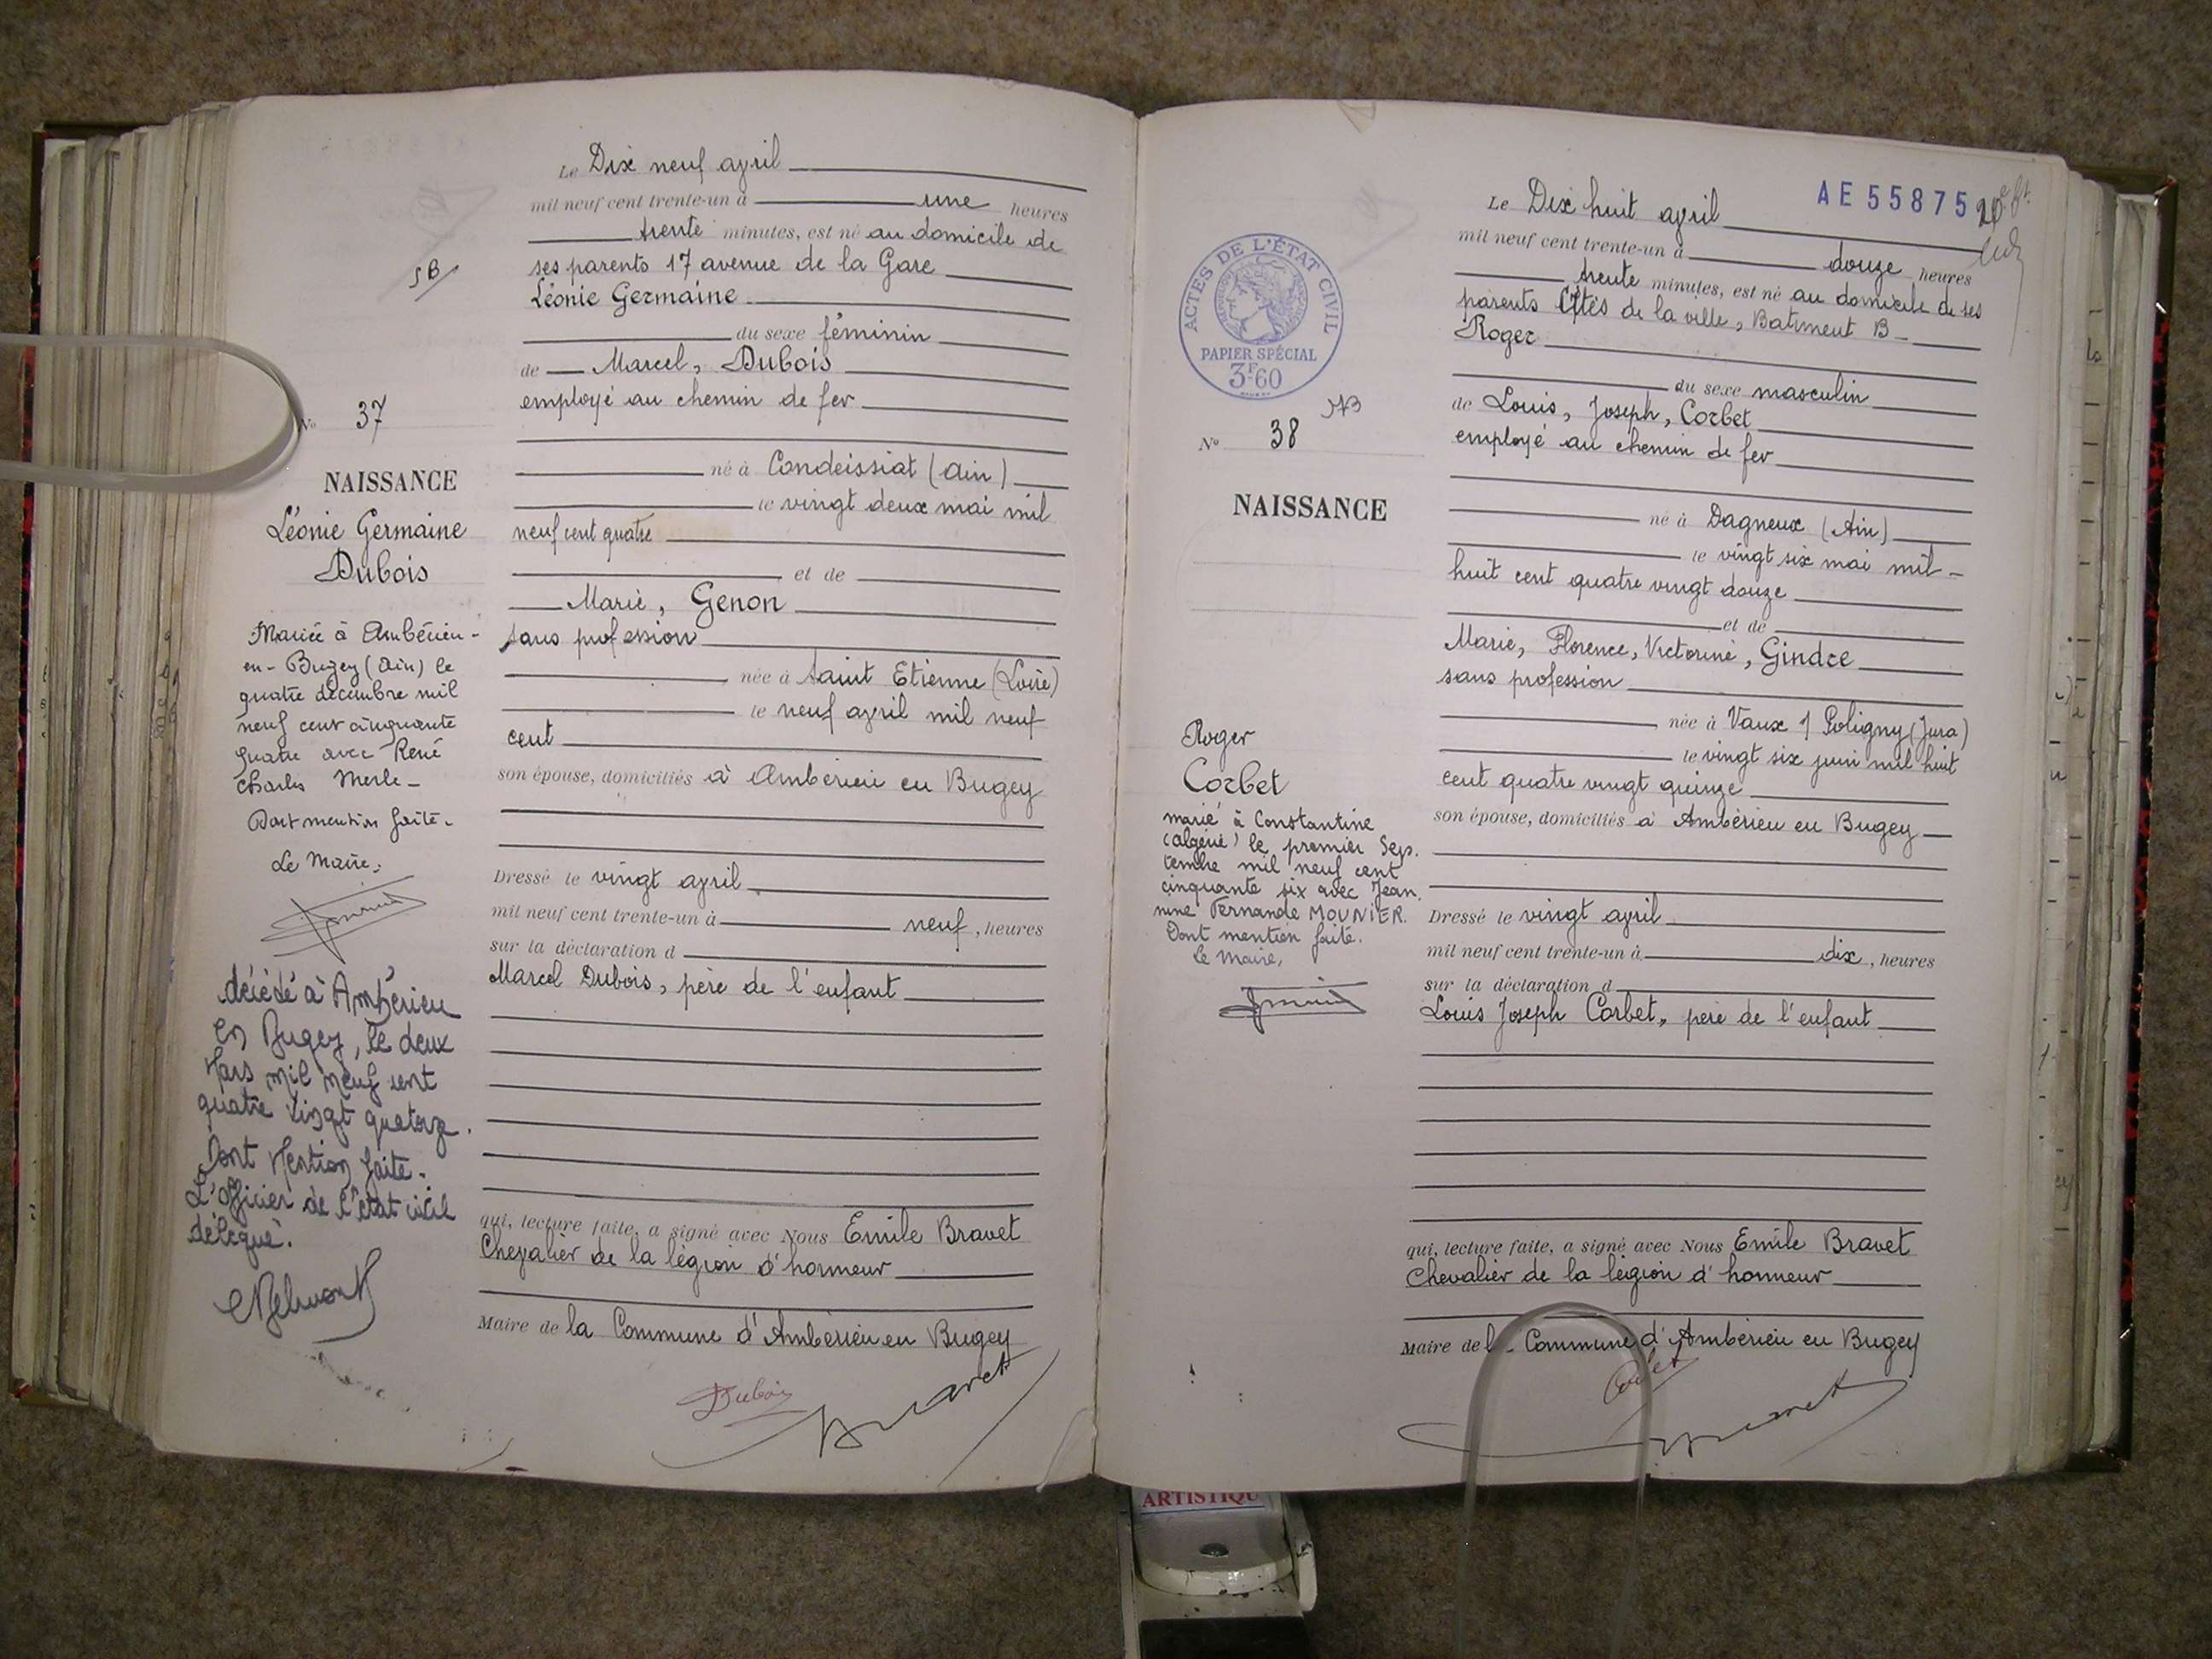 Le Dix neuf avril
mil neuf cent trente-un à une heures
trente minutes, est né au domicile de
ses parents 17 avenue de la Gare
Léonie Germaine
du sexe féminin
de Marcel, Dubois
employé au chemin de fer
né à Condeissiat (Ain)
le vingt deux mai mil
neuf cent quatre
et de
Marie, Genon
sans profession
née à Saint Etienne (Loire)
le neuf avril mil neuf
cent
son épouse, domiciliés à Ambérieu en Bugey
Dressé le vingt avril
mil neuf cent trente-un à neuf, heures
sur la déclaration d
Marcel Dubois, père de l'enfant
qui, lecture faite, a signé avec Nous Emile Bravet
Chevalier de la légion d'honneur
Maire de la Commune d'Ambérieu en Bugey
Dubois
Bravet
SB
No 37
NAISSANCE
Léonie Germaine
Dubois
Mariée à Ambérieu-
en-Bugey (Ain) le
quatre décembre mil
neuf cent cinquante
quatre avec René
Charles Merle-
Dont mention faite.
Le Maire,
décédé à Ambérieu
en Bugey, le deux
Mars mil neuf cent
quatre vingt quatorze.
Dont Mention faite.
L'officier de l'état civil
délégué.
AE 55875
Le Dix huit avril
mil neuf cent trente-un à douze heures
trente minutes, est né au domicile de ses
parents Cités de la ville, Batiment B
Roger
du sexe masculin
de Louis, Joseph, Corbet
employé au chemin de fer
né à Dagneux (Ain)
le vingt six mai mil
huit cent quatre vingt douze
et de
Marie, Florence, Victorine, Gindre
sans profession
née à Vaux s/ Poligny (Jura)
le vingt six juin mil huit
cent quatre vingt quinze
son épouse, domiciliés à Ambérieu en Bugey
Dressé le vingt avril
mil neuf cent trente-un à dix, heures
sur la déclaration d
Louis Joseph Corbet, père de l'enfant
qui, lecture faite, a signé avec Nous Emile Bravet
Chevalier de la légion d'honneur
Maire de l Commune d'Ambérieu en Bugey
ACTES DE L'ÉTAT CIVIL
PAPIER SPÉCIAL
3F60
No 38
NAISSANCE
Roger
Corbet
marié à Constantine
(algérie) le premier Sep.
tembre mil neuf cent
cinquante six avec Jean.
nine Fernande MOUNIER.
Dont mention faite.
le Maire,
ARTISTIQU